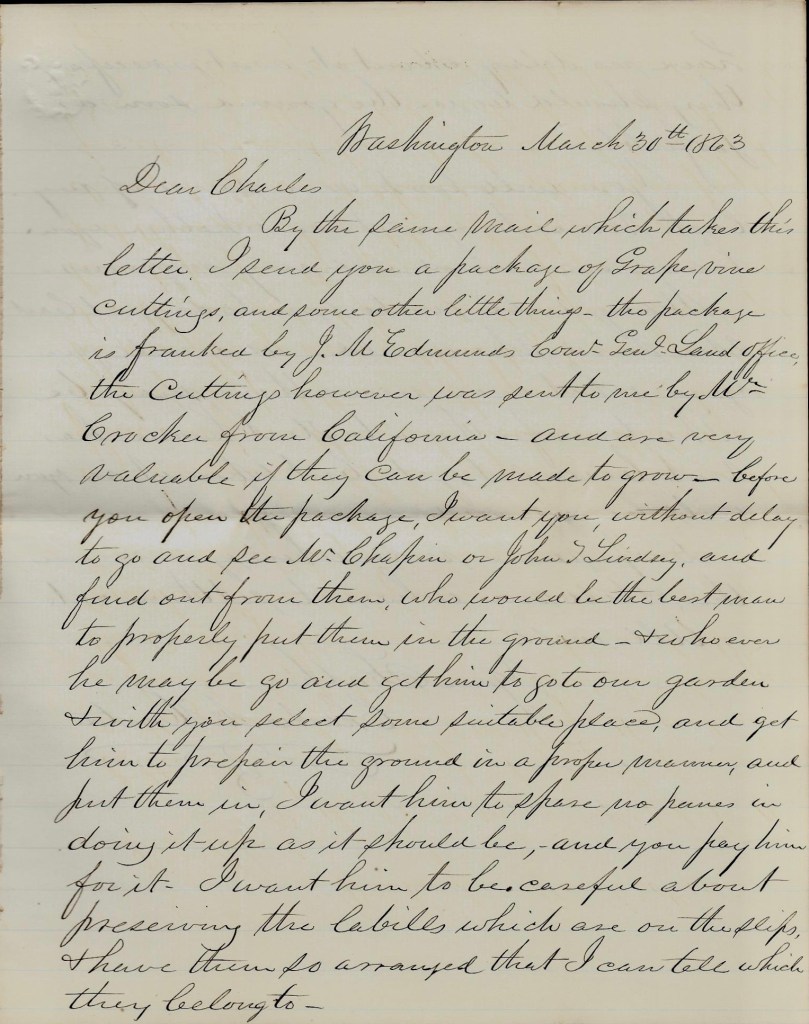 Washington March 30th 1863
Dear Charles
By the same mail which takes this
letter, I send you a package of Grape vine
cuttings, and some other little things - the package
is franked by J. M Edmunds Comr. Genl. Land office,
the cuttings however was sent to me by Mr
Crocker from California - and are very
valuable if they can be made to grow - before
you open the package, I want you, without delay
to go and see Mr. Chapin or John T Lindsey, and
find out from them, who would be the best man
to properly put them in the ground - & who ever
he may be go and get him to go to our garden
& with you select some suitable place, and get
him to prepair the ground in a proper manner, and
put them in, I want him to spare no panes in
doing it up as it should be, - and you pay him
for it - I want him to be careful about
preserving the labills which are on the slips,
& have them so arranged that I can tell which
they belong to -